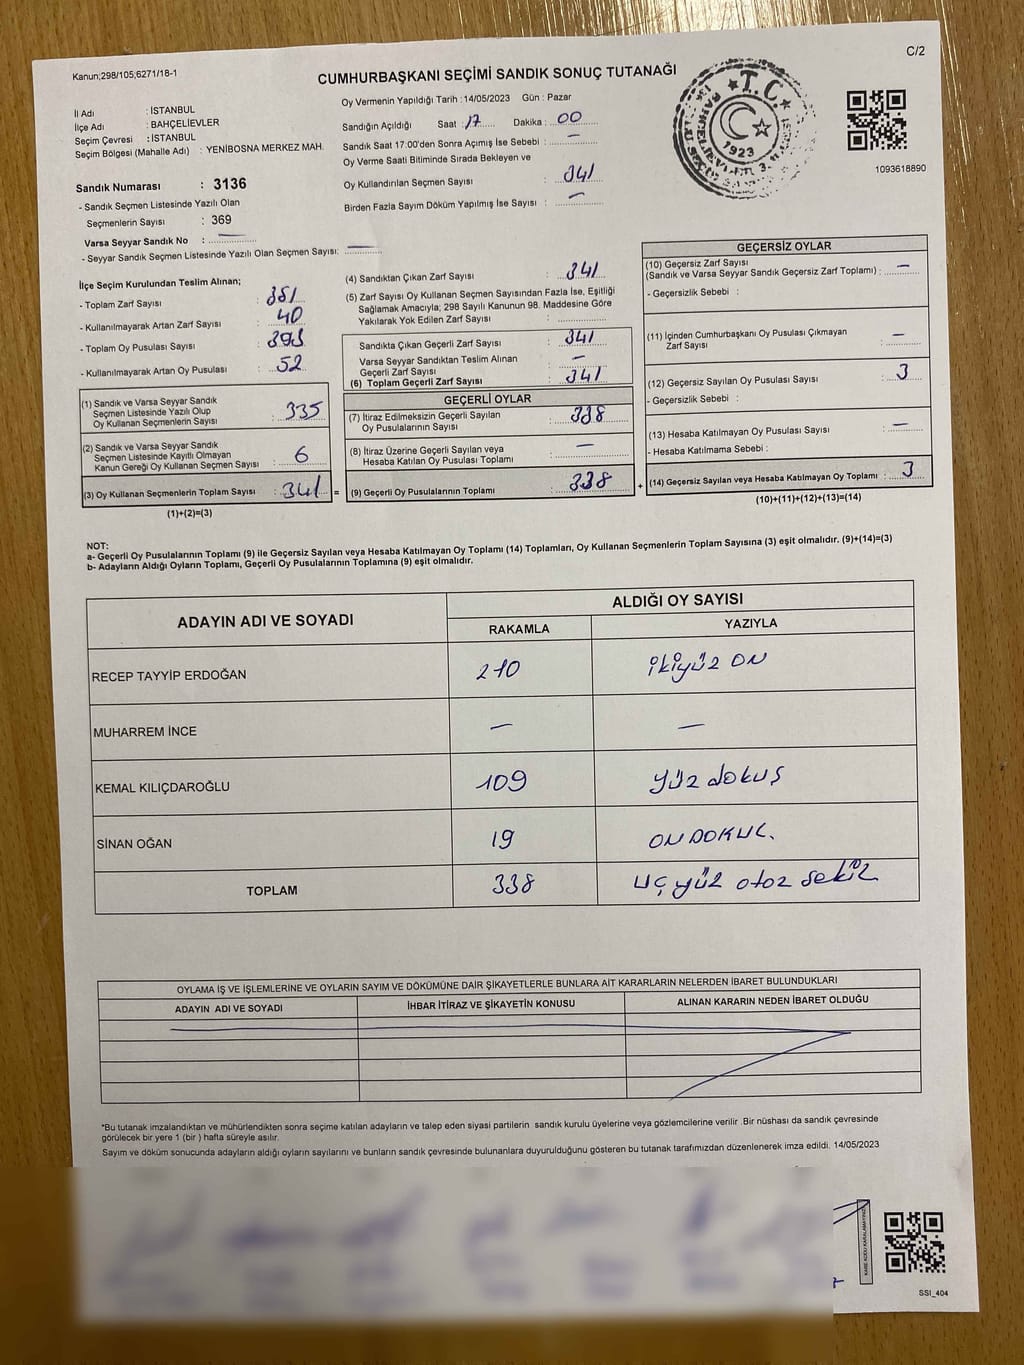 Kanun;298/105;6271/18-1
C/2
CUMHURBAŞKANI SEÇİMİ SANDIK SONUÇ TUTANAĞI
İl Adı : İSTANBUL
İlçe Adı : BAHÇELİEVLER
Seçim Çevresi : İSTANBUL
Seçim Bölgesi (Mahalle Adı) : YENİBOSNA MERKEZ MAH.
Sandık Numarası : 3136
- Sandık Seçmen Listesinde Yazılı Olan
Seçmenlerin Sayısı : 369
Varsa Seyyar Sandık No : —
- Seyyar Sandık Seçmen Listesinde Yazılı Olan Seçmen Sayısı: —
Oy Vermenin Yapıldığı Tarih : 14/05/2023 Gün : Pazar
Sandığın Açıldığı Saat : 17 Dakika : 00
Sandık Saat 17:00'den Sonra Açımış İse Sebebi : —
Oy Verme Saati Bitiminde Sırada Bekleyen ve
Oy Kullandırılan Seçmen Sayısı : 341
Birden Fazla Sayım Döküm Yapılmış İse Sayısı : —
T.C.
1923
1093618890
İlçe Seçim Kurulundan Teslim Alınan;
- Toplam Zarf Sayısı : 381
- Kullanılmayarak Artan Zarf Sayısı : 40
- Toplam Oy Pusulası Sayısı : 393
- Kullanılmayarak Artan Oy Pusulası : 52
(1) Sandık ve Varsa Seyyar Sandık
Seçmen Listesinde Yazılı Olup
Oy Kullanan Seçmenlerin Sayısı : 335
(2) Sandık ve Varsa Seyyar Sandık
Seçmen Listesinde Kayıtlı Olmayan
Kanun Gereği Oy Kullanan Seçmen Sayısı : 6
(3) Oy Kullanan Seçmenlerin Toplam Sayısı : 341 =
(1)+(2)=(3)
(4) Sandıktan Çıkan Zarf Sayısı : 341
(5) Zarf Sayısı Oy Kullanan Seçmen Sayısından Fazla İse, Eşitliği
Sağlamak Amacıyla; 298 Sayılı Kanunun 98. Maddesine Göre
Yakılarak Yok Edilen Zarf Sayısı :
Sandıkta Çıkan Geçerli Zarf Sayısı : 341
Varsa Seyyar Sandıktan Teslim Alınan
Geçerli Zarf Sayısı : —
(6) Toplam Geçerli Zarf Sayısı : 341
GEÇERLİ OYLAR
(7) İtiraz Edilmeksizin Geçerli Sayılan
Oy Pusulalarının Sayısı : 338
(8) İtiraz Üzerine Geçerli Sayılan veya
Hesaba Katılan Oy Pusulası Toplamı : —
(9) Geçerli Oy Pusulalarının Toplamı : 338 +
GEÇERSİZ OYLAR
(10) Geçersiz Zarf Sayısı
(Sandık ve Varsa Seyyar Sandık Geçersiz Zarf Toplamı) : —
- Geçersizlik Sebebi :
(11) İçinden Cumhurbaşkanı Oy Pusulası Çıkmayan
Zarf Sayısı : —
(12) Geçersiz Sayılan Oy Pusulası Sayısı : 3
- Geçersizlik Sebebi :
(13) Hesaba Katılmayan Oy Pusulası Sayısı : —
- Hesaba Katılmama Sebebi :
(14) Geçersiz Sayılan veya Hesaba Katılmayan Oy Toplamı : 3
(10)+(11)+(12)+(13)=(14)
NOT:
a- Geçerli Oy Pusulalarının Toplamı (9) ile Geçersiz Sayılan veya Hesaba Katılmayan Oy Toplamı (14) Toplamları, Oy Kullanan Seçmenlerin Toplam Sayısına (3) eşit olmalıdır. (9)+(14)=(3)
b- Adayların Aldığı Oyların Toplamı, Geçerli Oy Pusulalarının Toplamına (9) eşit olmalıdır.
ADAYIN ADI VE SOYADI
ALDIĞI OY SAYISI
RAKAMLA YAZIYLA
RECEP TAYYİP ERDOĞAN 210 ikiyüz ON
MUHARREM İNCE — —
KEMAL KILIÇDAROĞLU 109 yüz dokuş
SİNAN OĞAN 19 ON DOKUZ.
TOPLAM 338 uç yüz otoz sekiz
OYLAMA İŞ VE İŞLEMLERİNE VE OYLARIN SAYIM VE DÖKÜMÜNE DAİR ŞİKAYETLERLE BUNLARA AİT KARARLARIN NELERDEN İBARET BULUNDUKLARI
ADAYIN ADI VE SOYADI İHBAR İTİRAZ VE ŞİKAYETİN KONUSU ALINAN KARARIN NEDEN İBARET OLDUĞU
*Bu tutanak imzalandıktan ve mühürlendikten sonra seçime katılan adayların ve talep eden siyasi partilerin sandık kurulu üyelerine veya gözlemcilerine verilir .Bir nüshası da sandık çevresinde
görülecek bir yere 1 (bir ) hafta süreyle asılır.
Sayım ve döküm sonucunda adayların aldığı oyların sayılarını ve bunların sandık çevresinde bulunanlara duyurulduğunu gösteren bu tutanak tarafımızdan düzenlenerek imza edildi. 14/05/2023
KARE KODU KARALAMAYINIZ
SSI_404